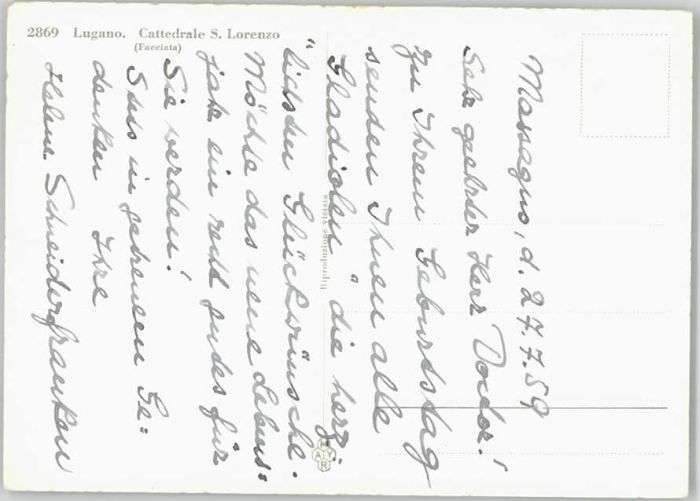 2869 Lugano. Cattedrale S. Lorenzo
(Facciata)
Massagno, d. 27.7.59
Sehr geehrter Herr Doctor!
Zu Ihrem Geburtstag
senden Ihnen alle
Gladiolen " die herz-
"lichsten Glückwünsche.
Möchte das neue Lebens-
jahr ein recht gutes für
Sie werden!
Stets in getreuem Ge-
denken Ihre
Helene Schneiderfranken
Riproduzione vietata